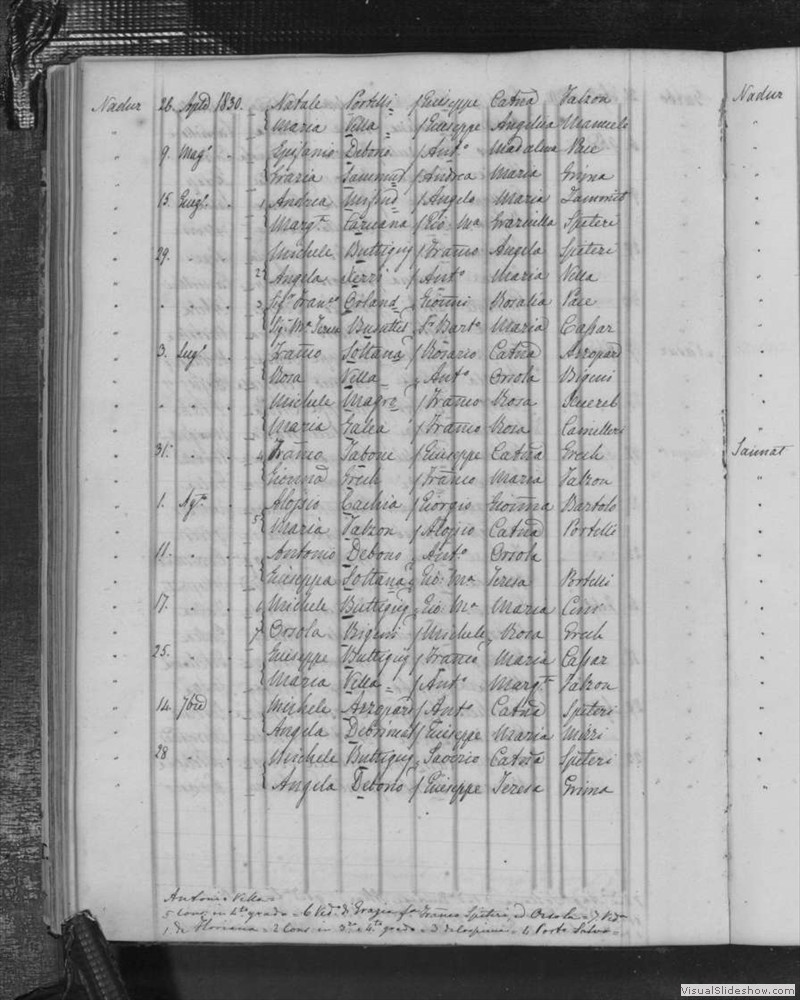 Nadur 26. Aple 1830. Natale Portelli f Giuseppe Catna Falzon
" Maria Villa f Giuseppe Angelica Manuele
" 9. Magº " Epifanio Debono f Antº Madalena Pace
" Grazia Sammut f Andrea Maria Grima
" 15. Giugº " 1 Andrea Mifsud f Angelo Maria Zammit
" Margta Faruana f Gio: Ma Graziella Speteri
" 29. " " Michele Buttigieg f Franco Angela Speteri
" 2 Angela Xerri f Antº Maria Villa
" " " " 3 Sigr Franco Giovni Rosalia Pace
" Sigª Mª Teresa Busuttil Dr Bartº Maria Caßar
" 3. Lugº " Franco Soltana f Rosario Catna Azzopard
" Rosa Villa Antº Orsola Bigeni
" " " " Michele Magro f Franco Rosa Xuereb
" Maria Galea f Franco Rosa Camelleri
" 31. " " 4 Franco Tabone f Giuseppe Catna Grech
" Gionna Grech f Franco Maria Falzon
" 1. Agto " Aloisio Cachia f Giorgio Gionna Bartolo
" 5 Maria Falzon f Aloisio Catna Portelli
" 11. " " Antonio Debono Antº Orsola
" Giuseppa Soltana Gio: Mª Teresa Portelli
" 17. " " 6 Michele Buttigieg Gio: Mª Maria
" 7 Orsola Bigeni f Michele Rosa Grech
" 25. " " Giuseppe Buttigieg f Franco Maria Caßar
" Maria Villa f Antº Margta Falzon
" 14. 7bre " Michele Azzopard f Antº Catna Speteri
" Angela f Giuseppe Maria Mizzi
" 28 " " Michele Buttigieg Saverio Catna Speteri
" Angela Debono f Giuseppe Teresa Grima
Antonio Villa
5 Cong. in 4to grado = 6 Vedº di Grazia fa Franco Speteri, ed Orsola = 7 Vedª
1 di Floriana = 2 Cons. in 3zo e 4to grado = 3 = 4 Porto Salvo =
Nadur
Sannat
VisualSlideshow.com